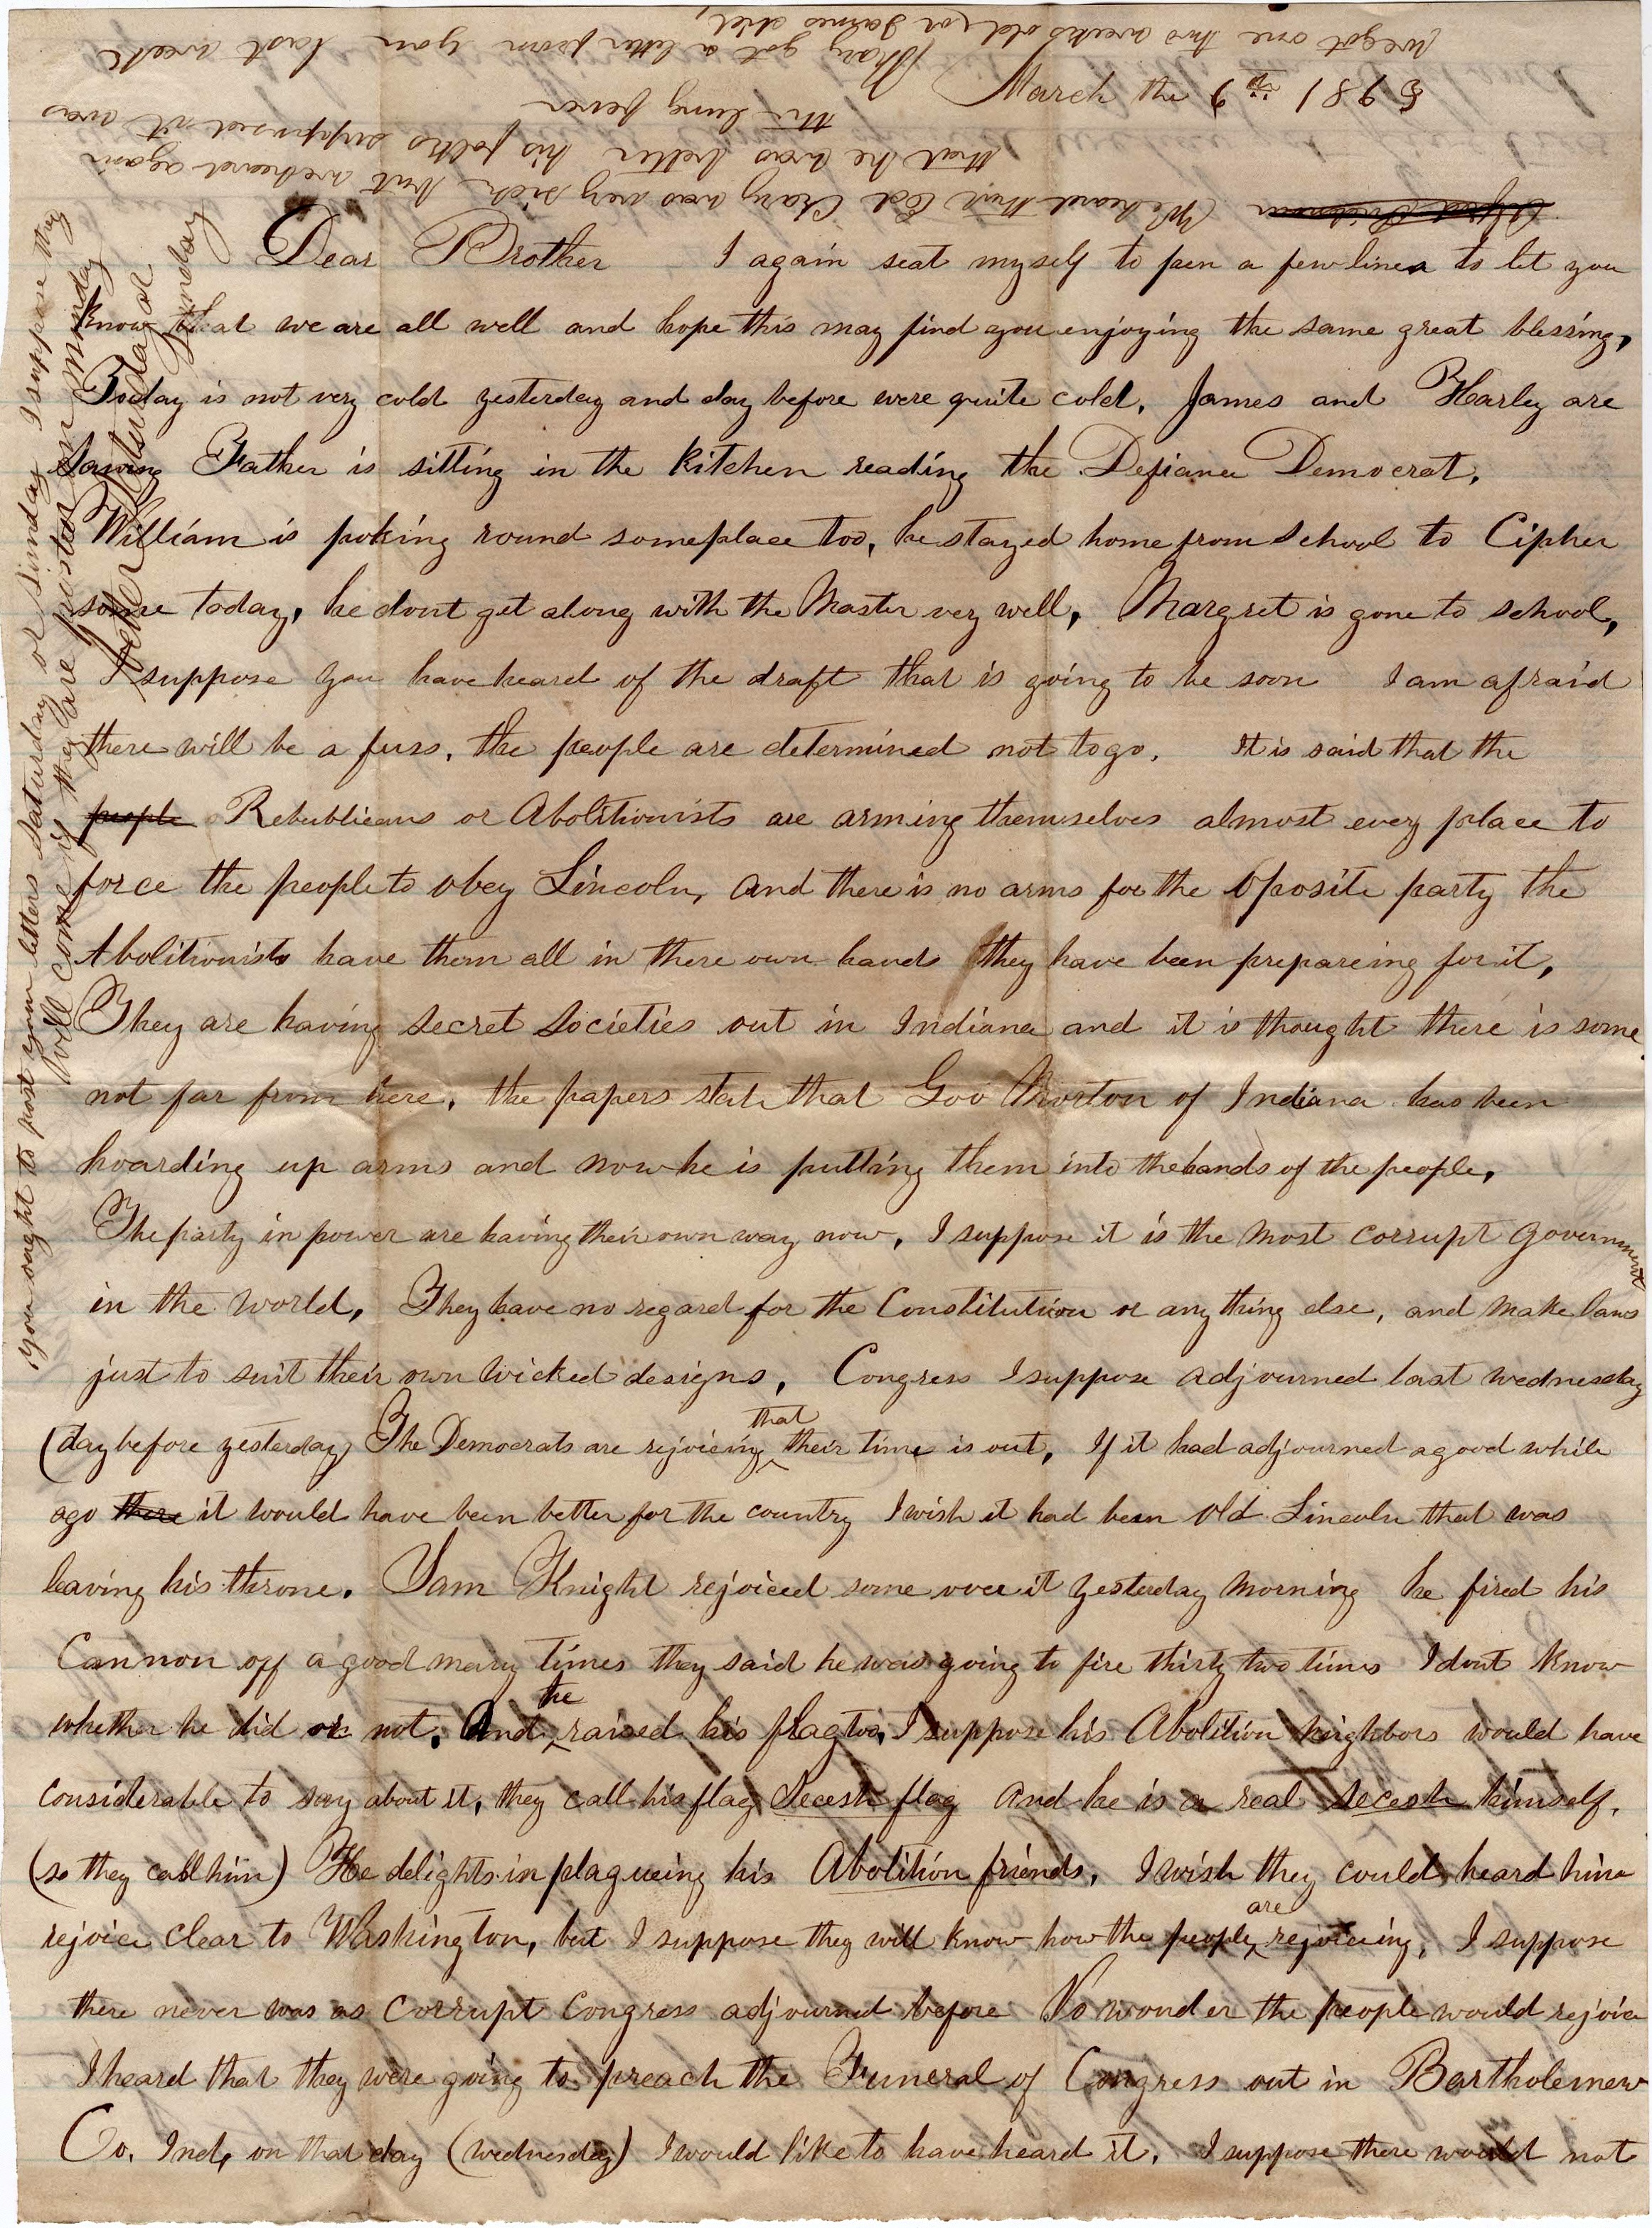 March the 9th 1863
Dear Brother I again seat myself to pen a few lines to let you
know that we are all well and hope this may find you enjoying the same great blessing,
Today is not very cold yesterday and day before were quite cold. James and Harley are
Sawing Father is sitting in the kitchen reading the Defiance Democrat.
William is poking round someplace too, he stayed home from school to Cipher
some today, he dont get along with the Master very well, Margret is gone to school,
I suppose you have heard of the draft that is going to be soon I am afraid
there will be a fuss, the people are determined not to go. It is said that the
people Rebublicans or Abolitionists are arming themselves almost every place to
force the people to obey Lincoln, and there is no arms for the oposite party the
Abolitionists have them all in there own hands they have been prepareing for it,
They are having secret societies out in Indiana and it is thought there is some
not far from here, the papers state that Gov Morton of Indiana has been
hoarding up arms and now he is putting them into the hands of the people,
The party in power are having their own way now, I suppose it is the most corrupt government
in the world, They have no regard for the Constitution or any thing else, and make laws
just to suit their own wicked designs, Congress I suppose adjourned last wednesday
(day before yesterday) The Democrats are rejoicing that their time is out, If it had adjourned a good while
ago there it would have been better for the country I wish it had been old Lincoln that was
leaving his throne. Sam Knight rejoiced some over it yesterday morning he fired his
Cannon off a good many times they said he was going to fire thirty two times I dont know
whether he did or not. And he raised his flag too, I suppose his Abolition neighbors would have
considerable to say about it, they call his flag Secesh flag and he is a real secesh himself,
(so they call him) He delights in plagueing his Abolition friends, I wish they could heard him
rejoice clear to Washington, but I suppose they will know how the people are rejoiceing, I suppose
there never was as corrupt Congress adjourned before No wonder the people would rejoice
I heard that they were going to preach the Funeral of Congress out in Bartholemew
Co. Ind, on that day (wednesday) I would like to have heard it. I suppose there would not
you ought to post your letters saturday or sunday I suppose they
will come if they are posted on monday
better saturday or
sunday
We heard that Col Clary was very sick but we heard again
that he was better his folks supposed it was
the lung fever
Mary got a letter from you last week
(we got one two weeks old) or James did,